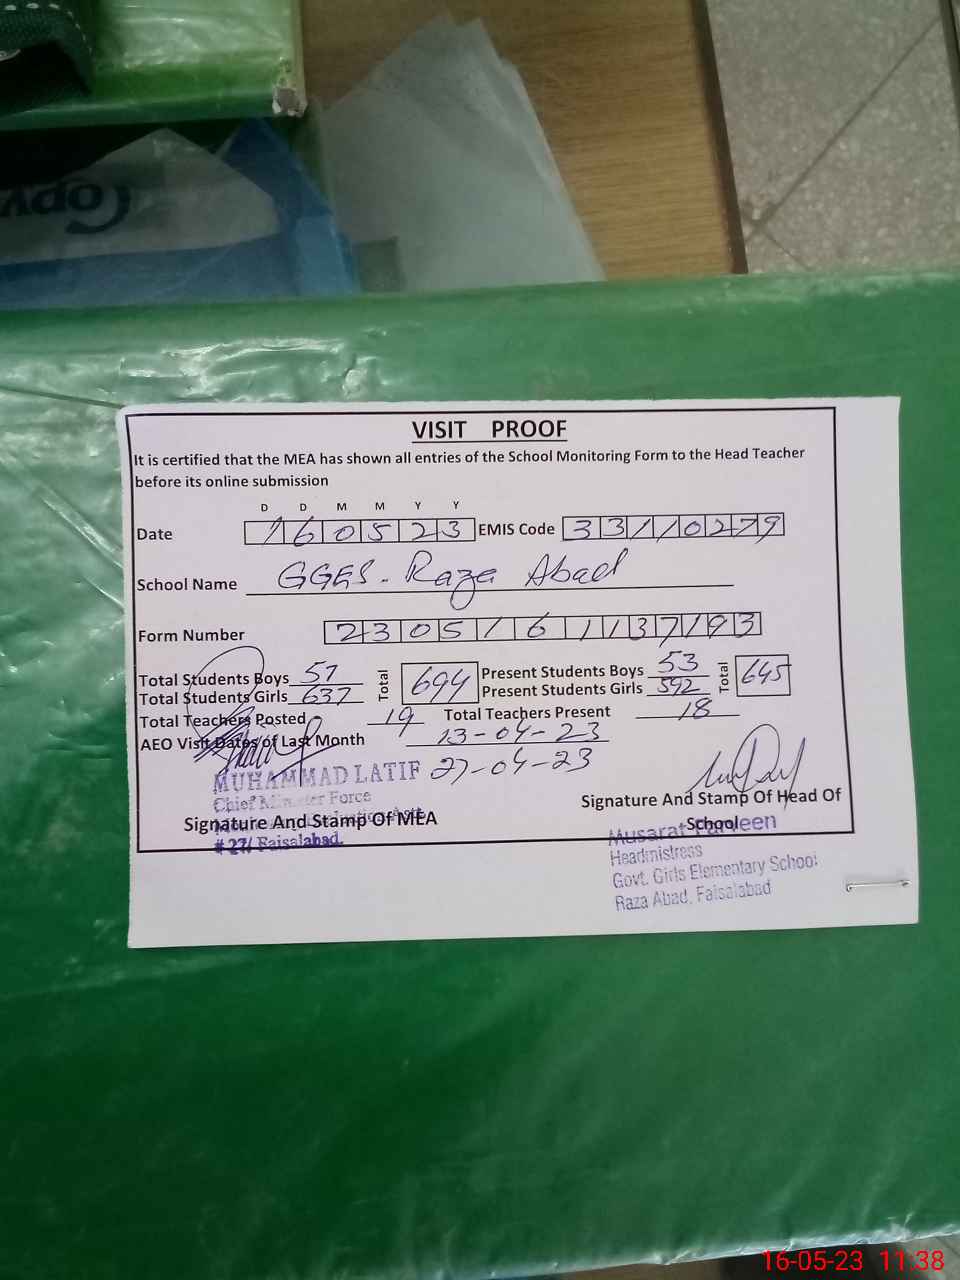 Copy
VISIT PROOF
It is certified that the MEA has shown all entries of the School Monitoring Form to the Head Teacher
before its online submission
D D M M Y Y
Date 160523 EMIS Code 33110279
School Name GGES. Raza Abad
Form Number 2305161137193
Total Students Boys 57 Total 694 Present Students Boys 53 Total 645
Total Students Girls 637 Present Students Girls 592
Total Teachers Posted 19 Total Teachers Present 18
AEO Visit Dates of Last Month 13-04-23
27-04-23
MUHAMMAD LATIF
Chief Minister Force
Signature And Stamp Of MEA
# 27/ Faisalabad.
Signature And Stamp Of Head Of
School
Musarat Parveen
Headmistress
Govt. Girls Elementary School
Raza Abad, Faisalabad
16-05-23 11:38